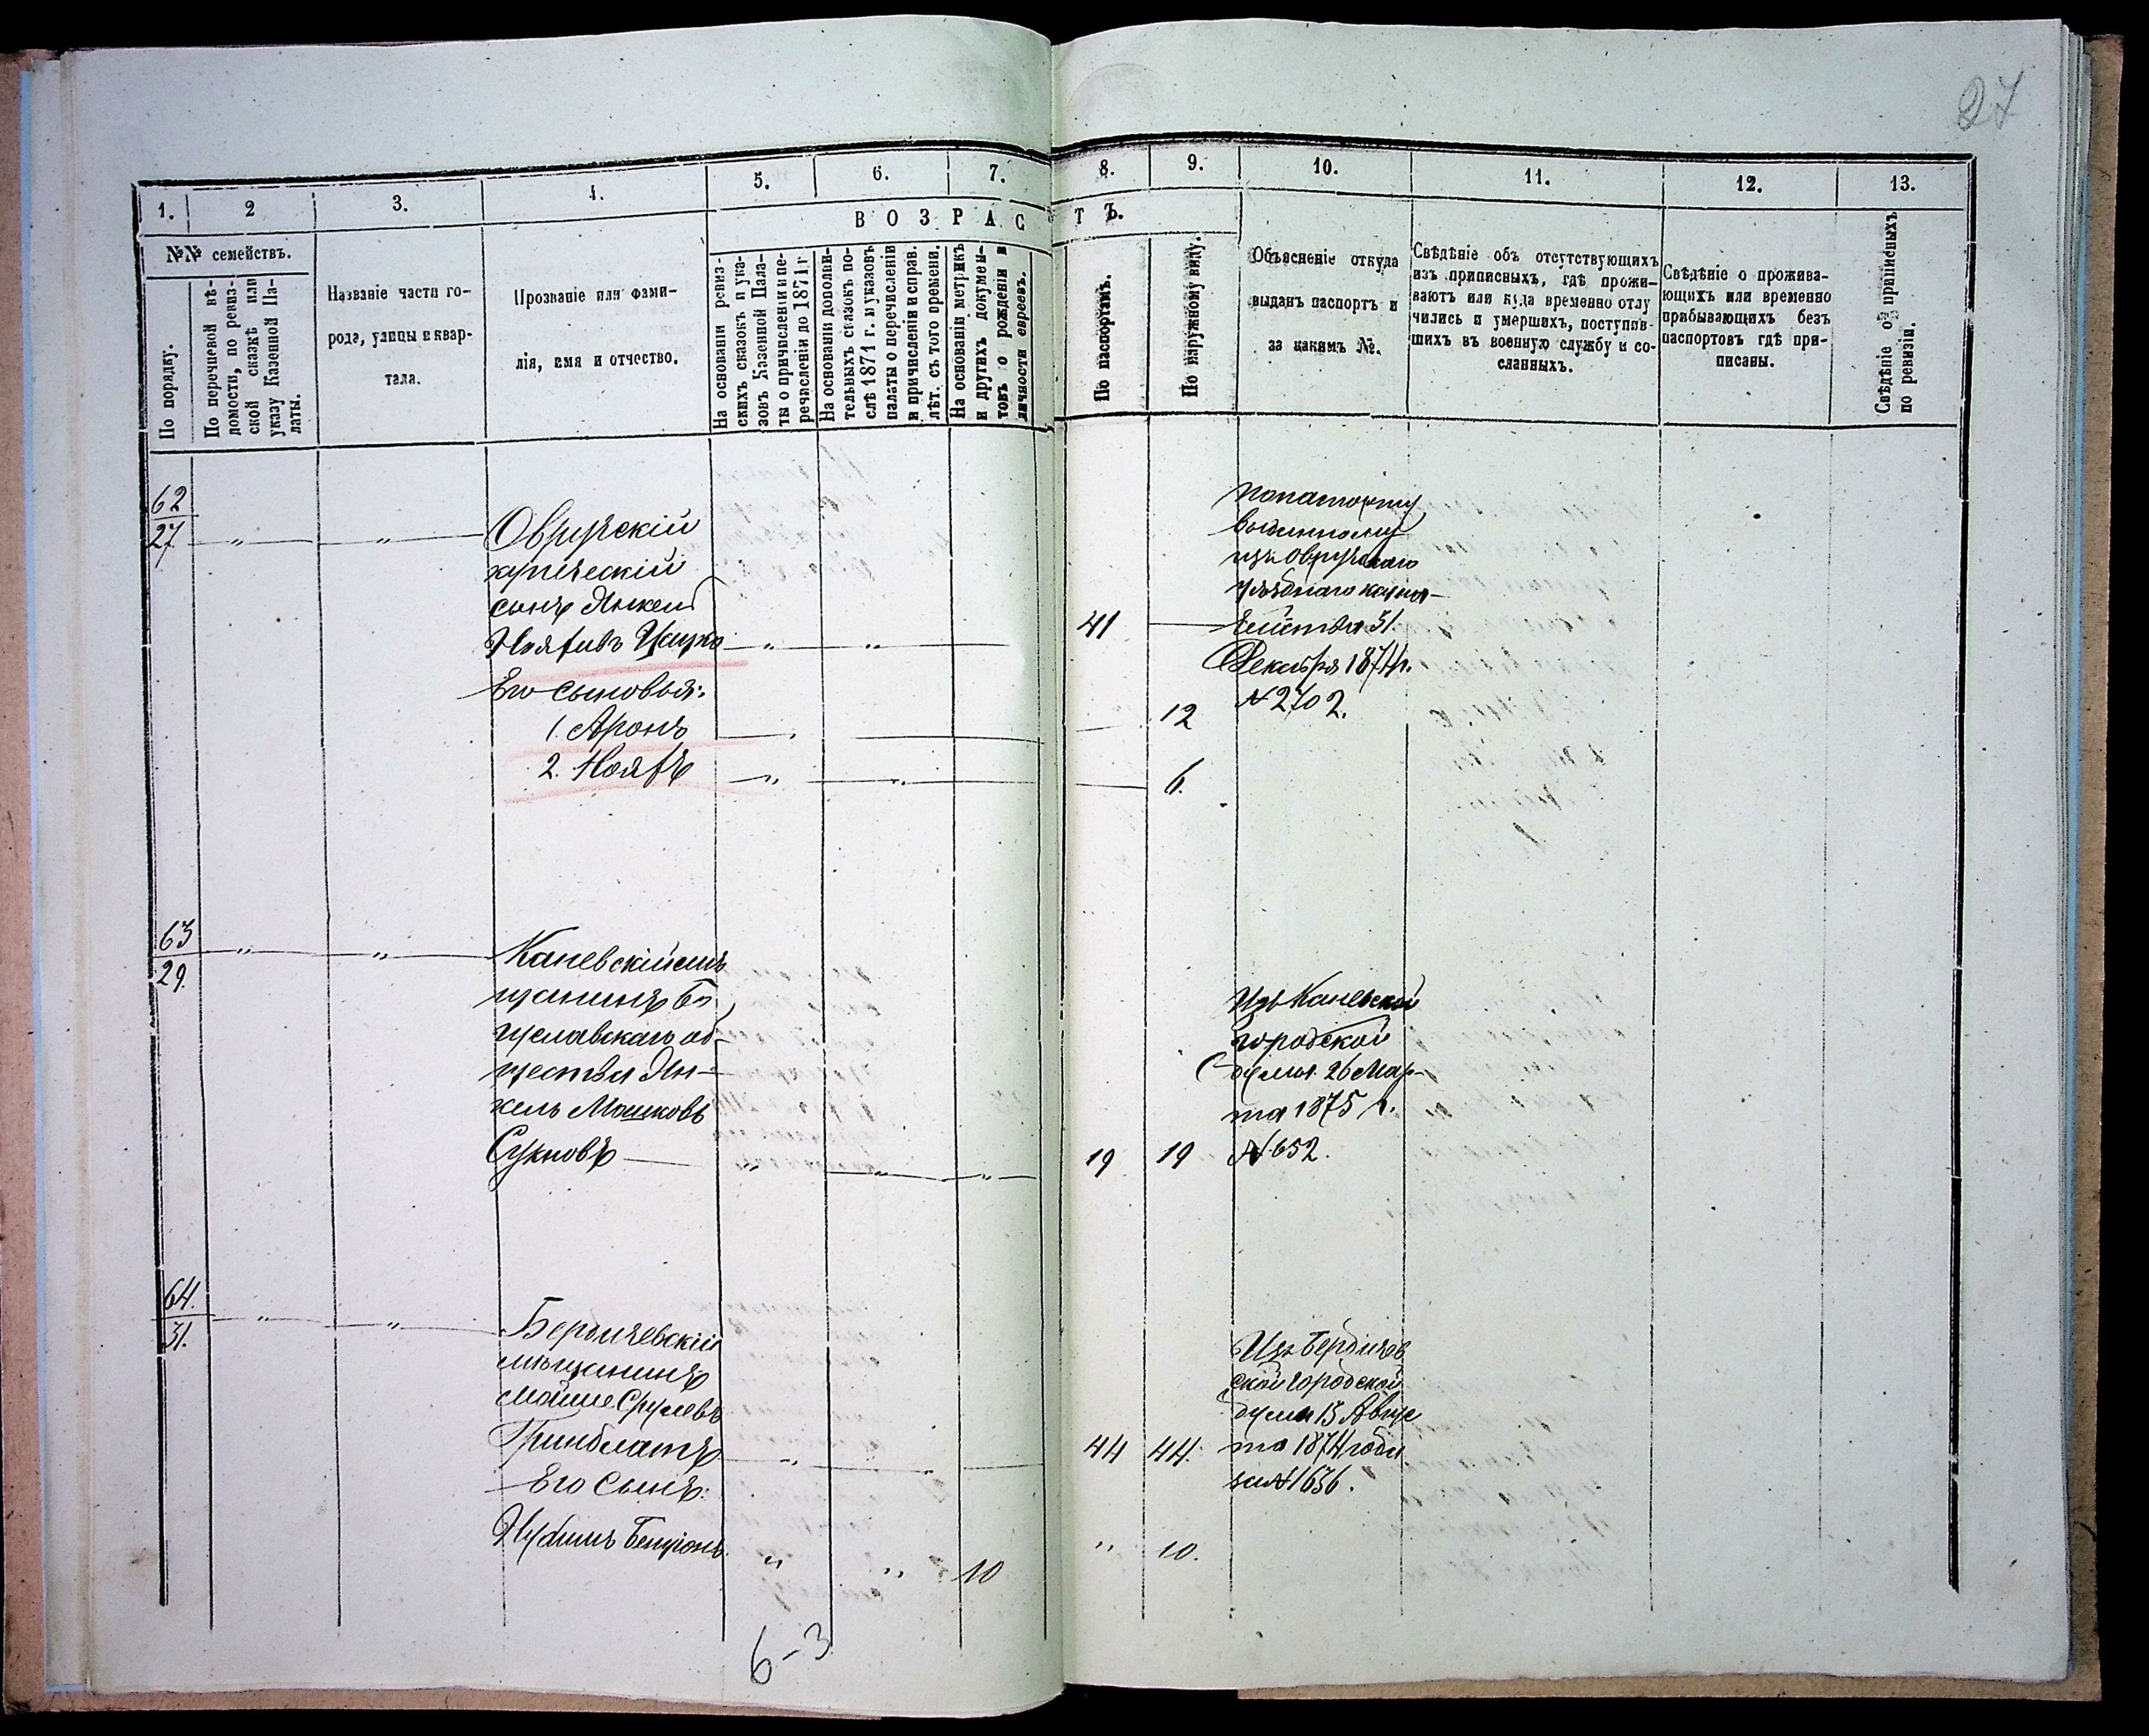 27
1. 2 3. 4. 5. 6. 7. 8. 9. 10. 11. 12. 13.
ВОЗРАСТЪ.
№№ семействъ.
По порядку.
По перечневой вѣ-
домости, по ревиз-
ской сказкѣ или
указу Казенной Па-
латы.
Названіе части го-
рода, улицы и квар-
тала.
Прозваніе или фами-
лія, имя и отчество.
На основаніи ревиз-
скихъ сказокъ и ука-
зовъ Казенной Пала-
ты о причисленіи и пе-
речисленіи до 1871 г
На основаніи дополни-
тельныхъ сказокъ по-
слѣ 1871 г. и указовъ
палаты о перечисленіи
и причисленіи и справ.
лѣт. съ того времени.
На основаніи метрикъ
и другихъ докумен-
товъ о рожденіи и
личности евреевъ.
По паспортамъ.
По наружному виду.
Объясненіе откуда
выданъ паспортъ и
за какимъ №.
Свѣдѣніе объ отсутствующихъ
изъ приписныхъ, гдѣ прожи-
ваютъ или куда временно отлу
чились и умершихъ, поступив-
шихъ въ военную службу и со-
сланныхъ.
Свѣдѣніе о прожива-
ющихъ или временно
прибывающихъ безъ
паспортовъ гдѣ при-
писаны.
Свѣдѣніе о приписныхъ
по ревизіи.
62
27 " "
Овручскій
купеческій
сынъ Янкель
" "
Его сыновья:
1. Аронъ "
2. " "
41
12
6.
По паспорту
выданному
изъ Овручскаго
уѣзднаго казна-
чейства 31.
Декабря 1874 г.
№ 2702.
63
29. " "
Каневскій мѣ
щанинъ Бо
гуславскаго об-
щества Ян-
кель Мошковъ
" " "
19 19
Изъ Каневской
городской
думы 26 Мар-
та 1875 г.
№ 652.
64.
31. " "
Бердичевскій
мѣщанинъ
Мойше Срулевъ
Гринблатъ " "
Его сынъ:
Бенционъ " " 10
44 44.
" 10.
Изъ Бердичев
ской городской
думы 13 Авгус
та 1874 года
за № 1636.
6-3